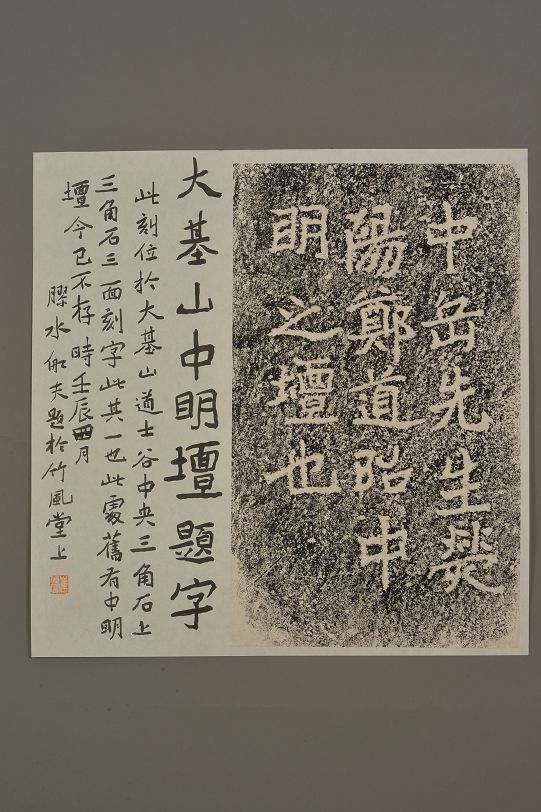 中岳先生熒
陽鄭道昭中
明之壇也
大基山中明壇題字
此刻位於大基山道士谷中央三角石上
三角石三面刻字此其一也此處舊有中明
壇今已不存時壬辰四月
膠水船夫題於竹風堂上